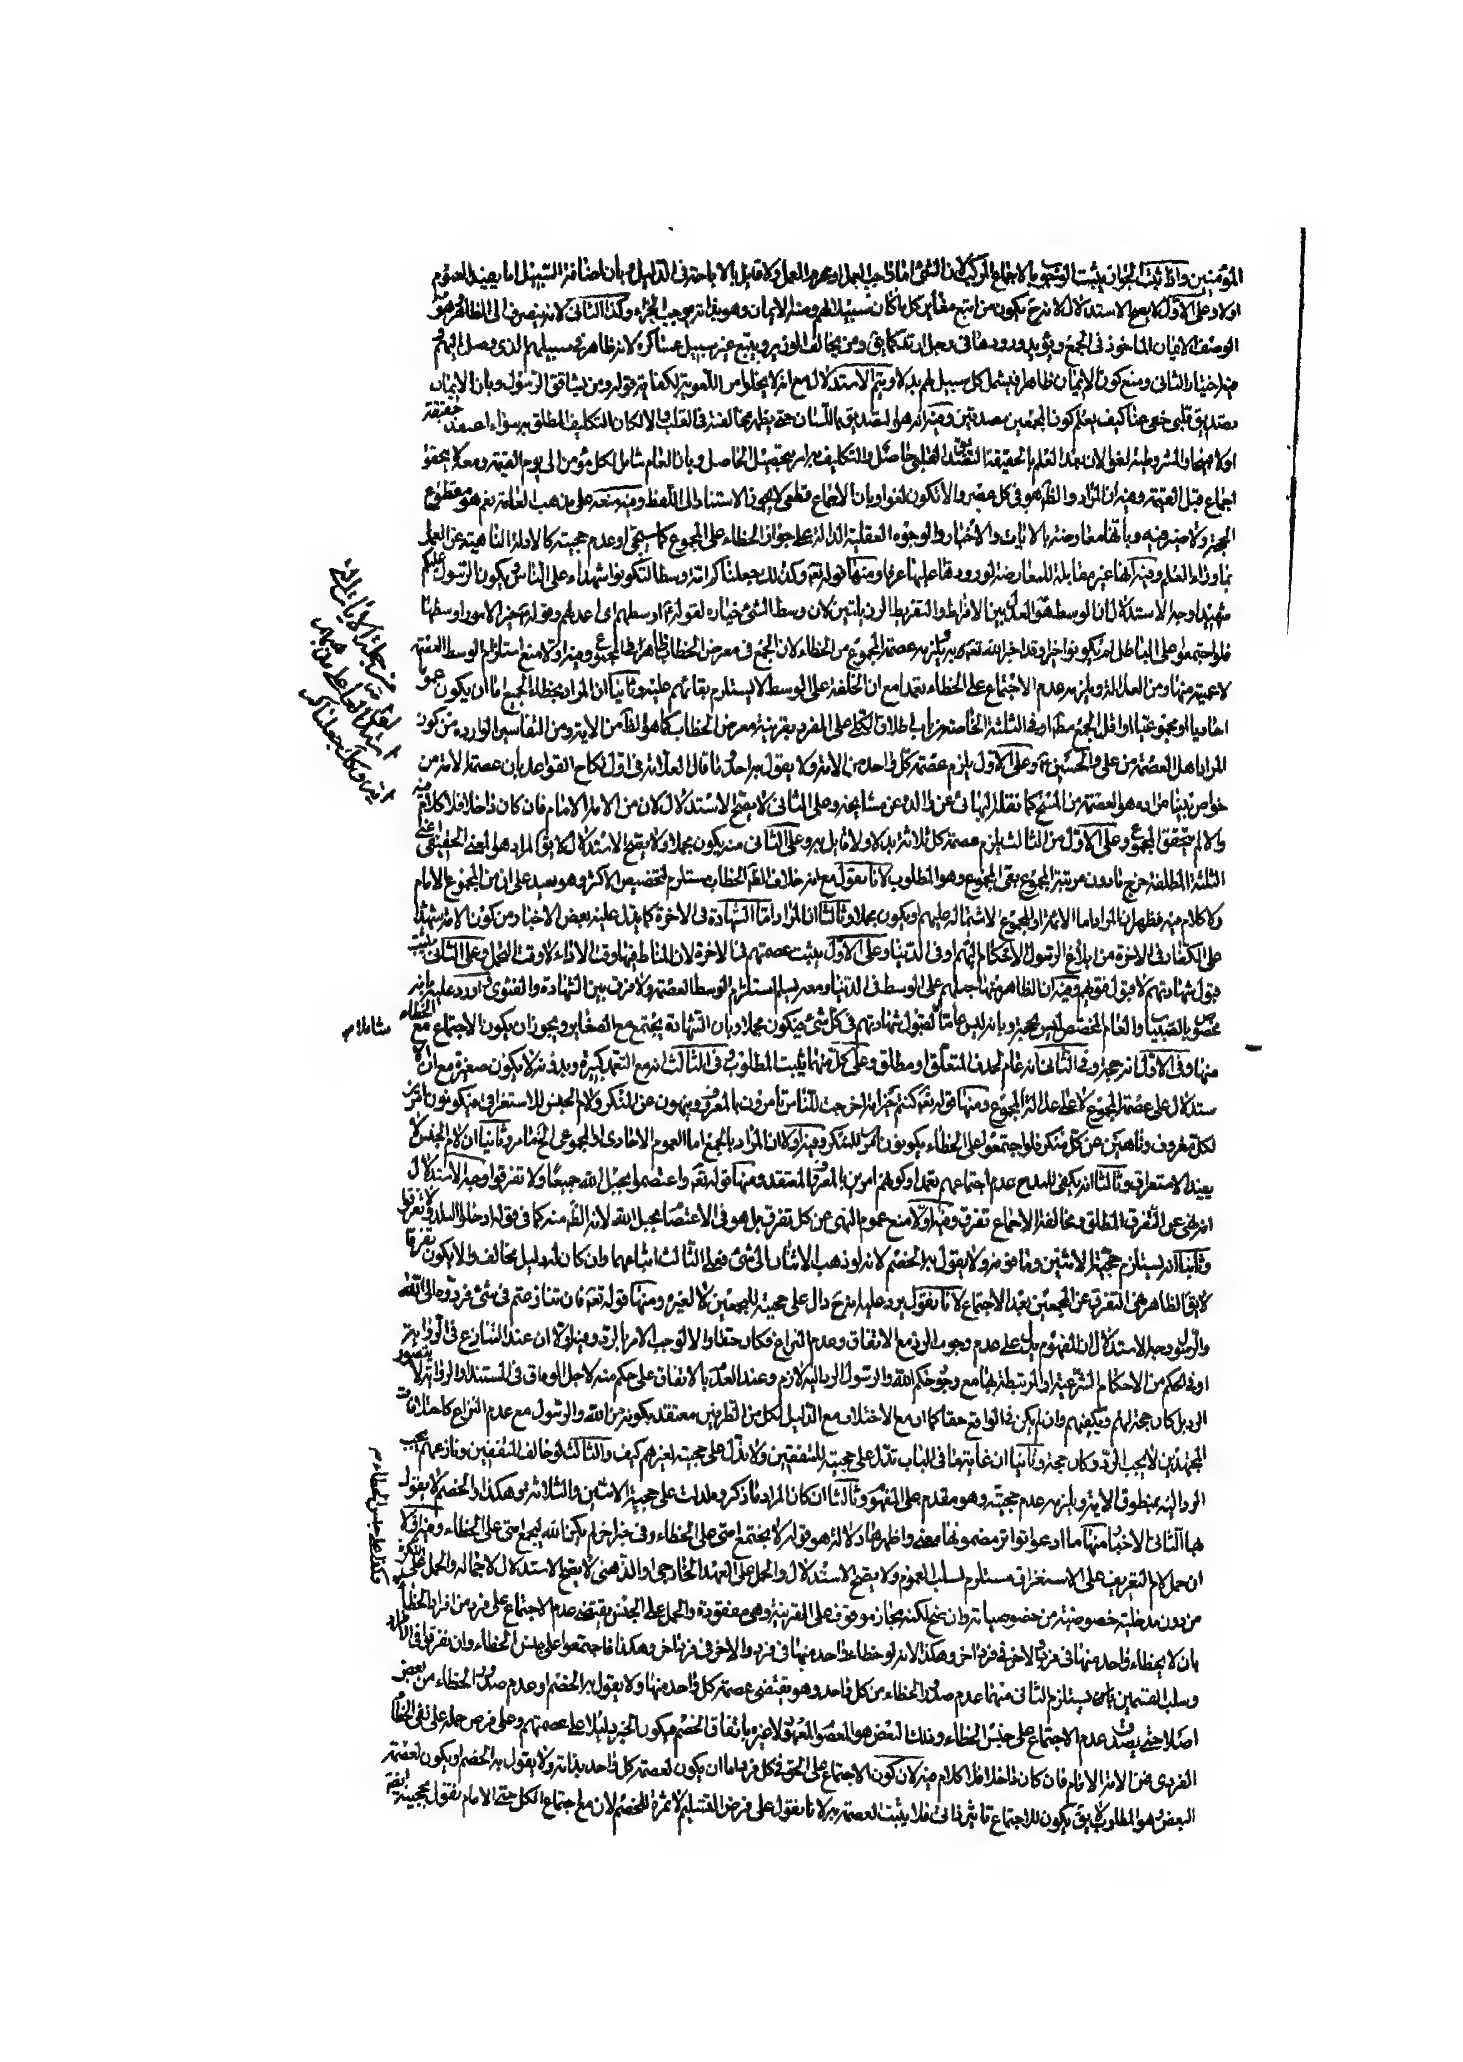 المؤمنين واذا ثبت الجواز يثبت الوجوب بالاجماع المركب لان الشئ اما واجب العمل او محرم العمل ولا قايل بالاباحة في الدليل وبان اضافة السبيل اما يفيد العموم
اولا وعلى الاول لا يصح الاستدلال لانه ح يكون من اتبع مغاير كل ما كان سبيلا لهم ومنه الايمان وهو بفراده يوجب الجزاء وكذا الثاني لانه ينصرف الى الظاهر وهو
الوصف الايمان الماخوذ في الجمع ويؤيده ورودها في رجل ارتد كما يق ومن يخالف الوزير ويتبع غير سبيل عساكره لانه ظاهر في سبيلهم الذي وصل اليهم
فيه اختيار الثاني ومنع كون الايمان ظاهرا فيشمل كل سبيل لهم بدلا ويتم الاستدلال مع انه لا يخلوا من اللغوية لكفاية قوله ومن يشاقق الرسول وبان الايمان
تصديق قلبي خفي عنا كيف يعلم كون المجمعين مصدقين وفيه انه هو التصديق باللسان حتى يظهر مخالفته في القلب والا لكان التكليف المطلق به سواء اعتقد حقيقة
اولا قبيحا والمشروطية لغوا لان بعد العلم بالحقيقة التصديق القلبي حاصل والتكليف به امر بتحصيل الحاصل وبان العام شامل لكل مؤمن الى يوم القيمة ومعه لا يتحقق
اجماع قبل القيمة وفيه ان المراد والظ هو في كل عصر والا تكون لغوا وبان الاجماع قطعي لا يجوز الاستناد الى اللفظ وفيه منعه على مذهب العامة نعم هو مقطوع
الحجية ولا ضير فيه وبانها معارضة بالايات والاخبار والوجوه العقلية الدالة على جواز الخطاء على المجموع كما سيجئ او عدم حجيته كالادلة الناهية عن العمل
بما وراء العلم وفيه انها غير مقابلة للمعارضة لورودها عليها عرفا ومنها قوله تعه وكذلك جعلناكم امة وسطا لتكونوا شهداء على الناس ويكون الرسول عليكم
شهيدا وجه الاستدلال ان الوسط هو العدل بين الافراط والتفريط الرذيلتين لان وسط الشئ خياره لقوله تع اوسطهم اى اعدلهم وقوله خير الامور اوسطها
فلو اجتمعوا على الباطل لم يكونوا خيارا وقد اخبر الله تعه به ويلزمه عصمة المجموع من الخطاء لان الجمع في معرض الخطاب ظاهر في المجموع وفيه اولا منع استلزام الوسط العصمة
لاعمية منها ومن العدالة ويلزمه عدم الاجتماع على الخطاء تعمدا مع ان الخلقة على الوسط لا يستلزم بقائهم عليه وثانيا ان المراد بخطاء الجميع اما ان يكون عموما
احاديا او مجموعيا او اقل الجمع مط او في الثلثة الخاصة من باب اطلاق الكلي على المفرد بقرينة معرض الخطاب كما هو الظ من الاية ومن التفاسير الواردة من كون
المراد اهل العصمة من علي والحسنين ع وعلى الاول يلزم عصمة كل واحد من الامة ولا يقول به احد وما قال العلامة في اول نكاح القواعد بان عصمة الامة من
خواص نبينا مراده هو العصمة من المسخ كما نقله البهائي عن والده عن مشايخه وعلى الثاني لا يصح الاستدلال لان من الامة الامام فان كان داخلا فلا كلام فيه
والا لم يتحقق المجموع وعلى الاول من الثالث يلزم عصمة كل ثلاثة بدلا ولا قايل به وعلى الثاني منه يكون مجملا ولا يصح الاستدلال لا يق المراد هو المعنى الحقيقي اعني
الثلثة المطلقة خرج ما دون مرتبة المجموع بقي المجموع وهو المطلوب لانا نقول مع انه خلاف الظ الخطاب مستلزم لتخصيص الاكثر وهو بعيد على ان من المجموع الامام
ولا كلام فيه فظهر ان المراد اما الائمة او المجموع لاشتماله عليهم او يكون مجملا وثالثا ان المراد اما الشهادة في الاخرة كما يدل عليه بعض الاخبار من كون الامة شهداء
على الكفار في الاخرة من ابلاغ الرسول الاحكام اليهم او في الدنيا وعلى الاول يثبت عصمتهم في الاخرة لان المناط فيها وقت الاداء لا وقت التحمل وعلى الثاني يثبت
قبول شهادتهم لا قبول فتويهم وفيه ان الظاهر منها جعلهم على الوسط في الدنيا ومعه يسلم استلزام الوسط العصمة ولا فرق بين الشهادة والفتوى واورد عليه بانه
مخصوص بالصبيان والعام المخصص ليس بحجة وبانه ليس عاما لقبول شهادتهم في كل شئ فيكون مجملا وبان الشهادة يجتمع مع الصغاير ويجوز ان يكون الاجتماع مع الخطاء
منها وفي الاول انه حجة وفي الثاني انه عام لحذف المتعلق او مطلق وعلى كل منهما يثبت المطلوب وفي الثالث انه مع التعمد كبيرة وبدونه لا يكون صغيرة مع ان الا
ستدلال على عصمة المجموع لا على عدالة المجموع ومنها قوله تعه كنتم خير امة اخرجت للناس تامرون بالمعروف وتنهون عن المنكر ولام الجنس للاستغراق فيكونون امرين
لكل معروف وناهين عن كل منكر فلو اجتمعوا على الخطاء يكونون امرين للمنكر وفيه اولا ان المراد بالجمع اما العموم الافرادى او المجموعي الخ ما مر وثانيا ان لام الجنس لا
يفيد الاستغراق وثالثا انه يكفي للمدح عدم اجتماعهم تعمدا وكونهم امرين بالمعروف المعتقد ومنها قوله تعه واعتصموا بحبل الله جميعا ولا تفرقوا وجه الاستدلال
انه نهى عن التفرق المطلق ومخالفة الاجماع تفرق وفيه اولا منع عموم النهي عن كل تفرق بل هو في الاعتصام بحبل الله لانه الظ منه كما في قوله ادخلوا البلد ولا تفرقوا
وثانيا انه يستلزم حجية الاثنين وما فوقه ولا يقول به الخصم لانه لو ذهب الاثنان الى شئ فعلى الثالث اتباعهما وان كان له دليل مخالف والا يكون تفرقا
لا يق الظاهر هي التفرق عن المجمعين بعد الاجتماع لانا نقول يرد عليه انه ح دال على حجيته للمجمعين لا لغيره ومنها قوله تعه فان تنازعتم في شئ فردوه الى الله
والرسول وجه الاستدلال ان المفهوم يدل على عدم وجوب الرد مع الاتفاق وعدم النزاع فكان حقا والا لوجب الامر بالرد وفيه اولا ان عند التنازع في الرواية
او في الحكم من الاحكام الشرعية او المرتبطة بها مع وجود حكم الله والرسول الرد اليه لازم وعند العدم بالاتفاق على حكم منه لاجل الوفاق في المستند او الرواية لا يتصور
الرد بل كان حجة لهم ويكفيهم وان لم يكن في الواقع حقا كما ان مع الاختلاف مع الدليل لكل من الطرفين معتقد بكونه من الله والرسول مع عدم النزاع كاختلافات
المجتهدين لا يجب الرد وكان حجة وثانيا ان غايتها في الباب تدل على حجيته للمتفقين ولا تدل على حجيته لغيرهم كيف والثالث لو خالف المتفقين ونازعهم يجب
الرد اليه بمنطوق الاية ويلزمه عدم حجيته وهو مقدم على المفهوم وثالثا ان كان المراد ما ذكر فلدلت على حجية الاثنين والثلاثة وهكذا والخصم لا يقول
بها الثاني الاخبار منها ما ادعوا تواتر مضمونها معنى واظهرها دلالة هو قوله لا يجتمع امتي على الخطاء وفي خبر اخر لم يكن الله ليجمع امتي على الخطاء وفيه اولا
ان حمل لام التعريف على الاستغراق مستلزم لسلب العموم ولا يصح الاستدلال والحمل على العهد الخارجي او الذهني لا يصح الاستدلال لاجماله والحمل على
من دون مدخلية خصوصية من خصوصياته وان صح لكنه مجاز موقوف على القرينة وهي مفقودة والحمل على الجنس يقتضي عدم الاجتماع على فرد من افراد الخطاء
بان لا يخطاء واحد منها في فرد والاخر في فرد اخر وهكذا لانه لو خطاء واحد منها في فرد والاخر في فرد اخر وهكذا فاجتمعوا على جنس الخطاء وان تفرقوا في الافراد
وسلب القسمين يستلزم الثاني منهما عدم صدور الخطاء من كل واحد وهو يقتضي عصمة كل واحد منها ولا يقول به الخصم او عدم صدور الخطاء من بعض
اصلا حتى يصدق عدم الاجتماع على جنس الخطاء وذلك البعض هو المعصوم المعهود لا غيره باتفاق الخصم فيكون الخبر دليلا على عصمتهم وعلى فرض حمله على نفي الخطاء
الفردى من الامة الامام فان كان داخلا فلا كلام فيه لان كون الاجتماع على الحق في كل فرد اما ان يكون لعصمة كل واحد بذاته ولا يقول به الخصم او يكون لعصمة
البعض وهو المطلوب لا يق يكون للاجتماع تاثير ذاتي فلا يثبت العصمة به لانا نقول على فرض التسليم لا ثمرة للخصم لان مع اجتماع الكل حتى الامام نقول بحجيته ايضا